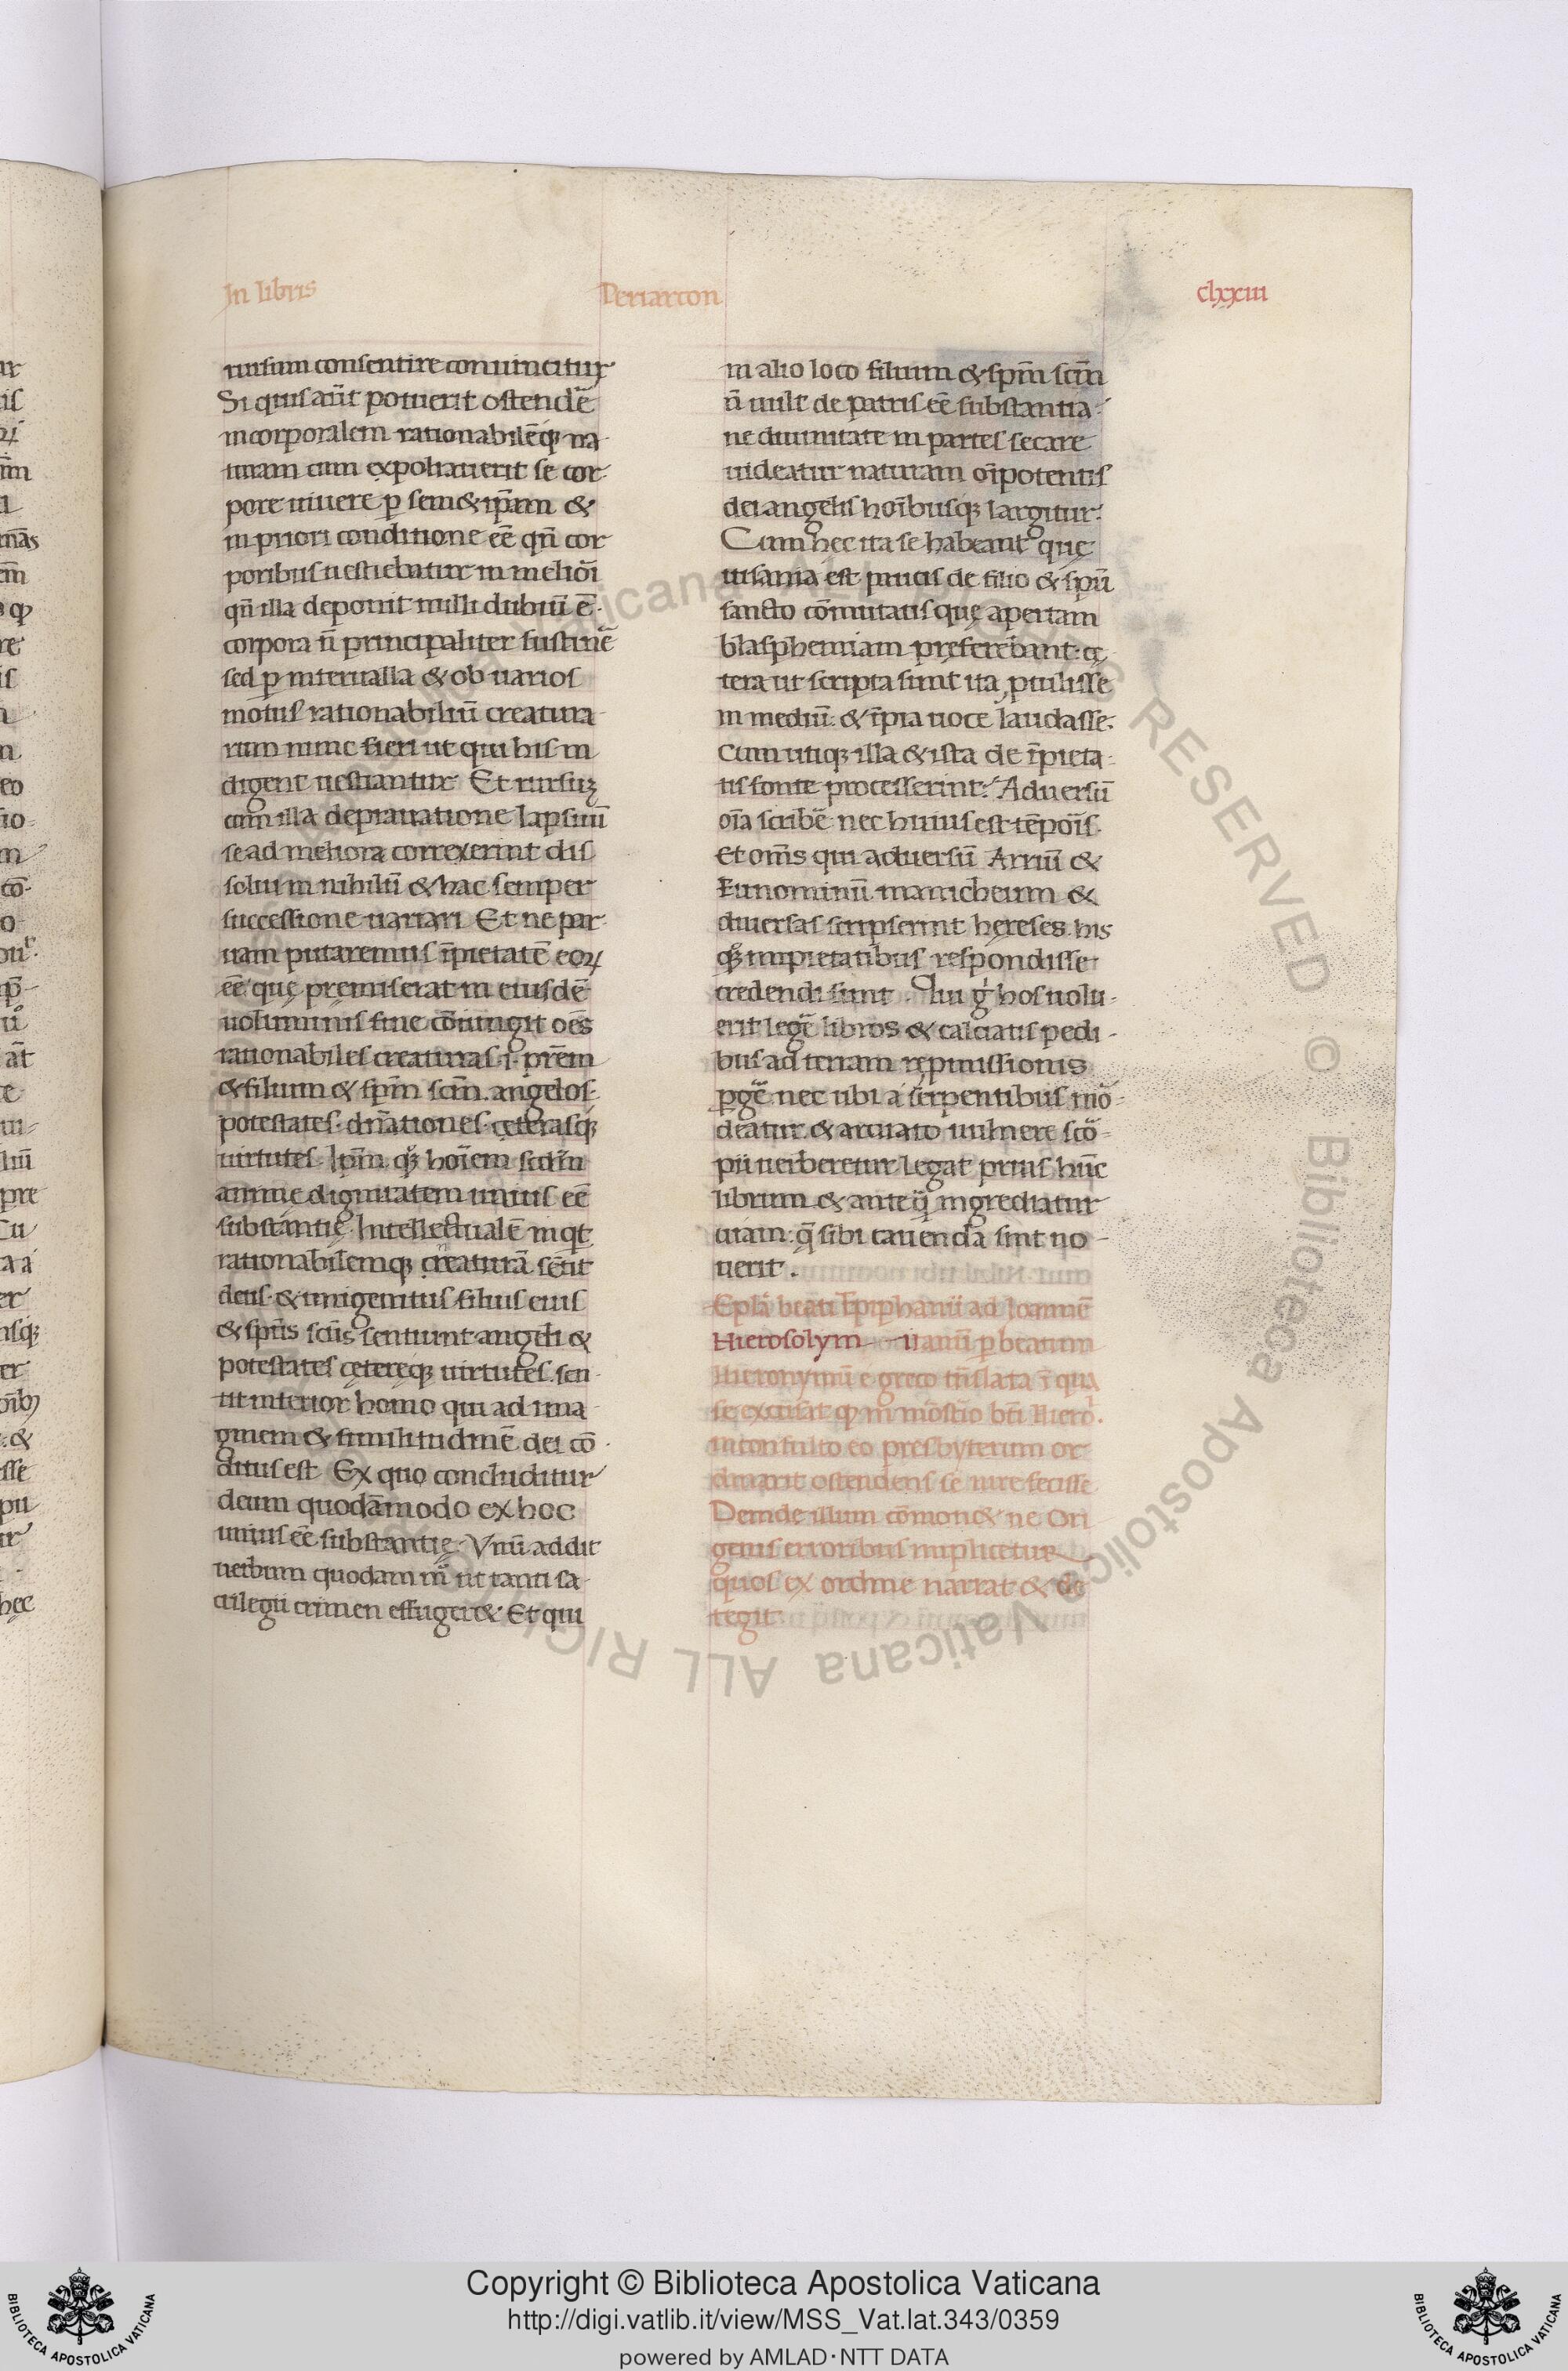 In libris Periarcon clxxiii
rursum consentire conuincitur
Si quis aūt potuerit ostendē
incorporalem rationabilēq; na
turam cum expoliauerit se cor
pore uiuere p sem& ip̄am &
in priori conditione eē qn̄ cor
poribus uestiebatur in meliōi
qn̄ illa deponit nulli dubiū ē.
corpora n̄ principaliter sustinē
sed p interualla & ob uarios
motus rationabiliū creatura
rum nunc fieri ut qui his in
digent uestiantur Et rursuʒ
cum illa deprauatione lapsuū
se ad meliora correxerint dis
solui in nihilū & hac semper
successione uariari Et ne par
uam putaremus īpietatē eoꝝ
eē que premiserat in eiusdē
uoluminis fine cōiungit oēs
rationabiles creaturas .i. prēm
& filium & sp̄m scm̄. angelos.
potestates. dn̄ationes. ceterasq;
uirtutes. Ip̄m q; hoīem scdm̄
anime dignitatem unius eē
substantię. Intellectualē inqt
rationabilemq; creaturā sētit
deus & unigenitus filius eius
& sp̄us scūs sentiunt angeli &
potestates cetereq; uirtutes. sen
tit interior homo qui ad ima
ginem & similitudinē dei cō
ditus est Ex quo concluditur
deum quodāmodo ex hoc
unius eē substantię. Vnū addit
uerbum quodam m̄ ut tanti sa
crilegii crimen effuger& Et qui
in alio loco filium & sp̄m scm̄
n̄ uult de patris eē substantia
ne diuinitate in partes secare
uideatur naturam oīpotentis
dei angelis hoībusq; largitur.
Cum hec ita se habeant que
uisania est paucis de filio & spū
sancto cōmutatis quę apertam
blasphemiam preferebant: cę
tera ut scripta sunt ita ptulisse
in mediū: & īpia uoce laudasse.
Cum utiq; illa & ista de īpieta
tis fonte processerint. Aduersū
oīa scribē nec huius est tēpoīs.
Et omēs qui aduersū Arriū &
Eunominū manicheum &
diuersas scripserint hereses. his
q; impietatibus respondisse
credendi sunt. Qui g hos uolu-
erit legē libros & calciatis pedi-
bus ad terram repmissionis
pgē nec ubi a serpentibus mō-
deatur & arcuato uulnere scō-
pii uerberetur legat prius hūc
librum & ante q̄ ingrediatur
uiam: q̄ sibi cauenda sint no-
uerit.
Epla beati Epiphanii ad Ioannē
Hierosolym uanū p beatum
Hieronymū e greco trn̄slata ī qua
se excusat qp in mōstio bti Hiero.
inconsulto eo presbyterum or
dinarit ostendens se iure fecisse
Deinde illum cōmon& ne Ori
genis erroribus implicetur
quos ex ordine narrat & de
tegit
Copyright © Biblioteca Apostolica Vaticana
http://digi.vatlib.it/view/MSS_Vat.lat.343/0359
powered by AMLAD·NTT DATA